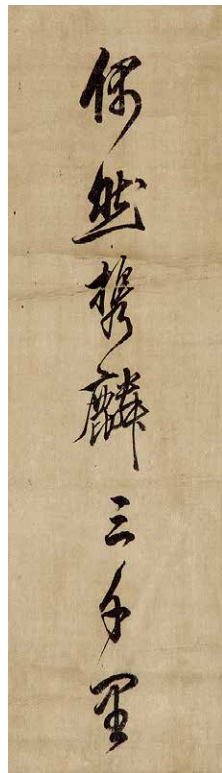 偶然携麟三千里